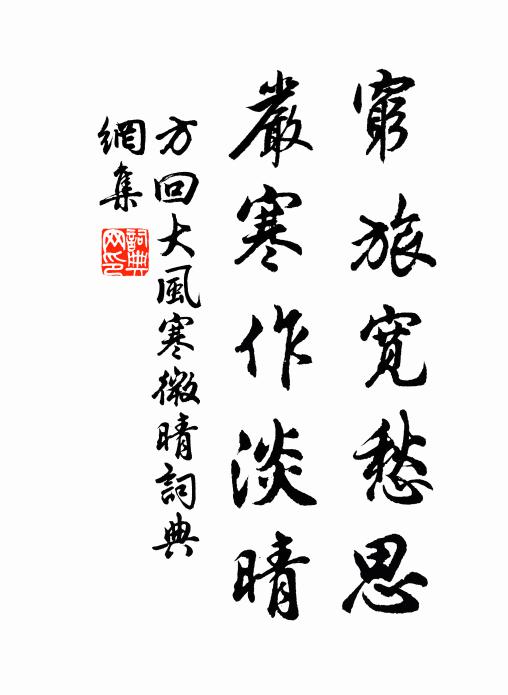 窮旅寬愁思
嚴寒作淡晴
方回大風寒微晴詞典
網集
詞典網印